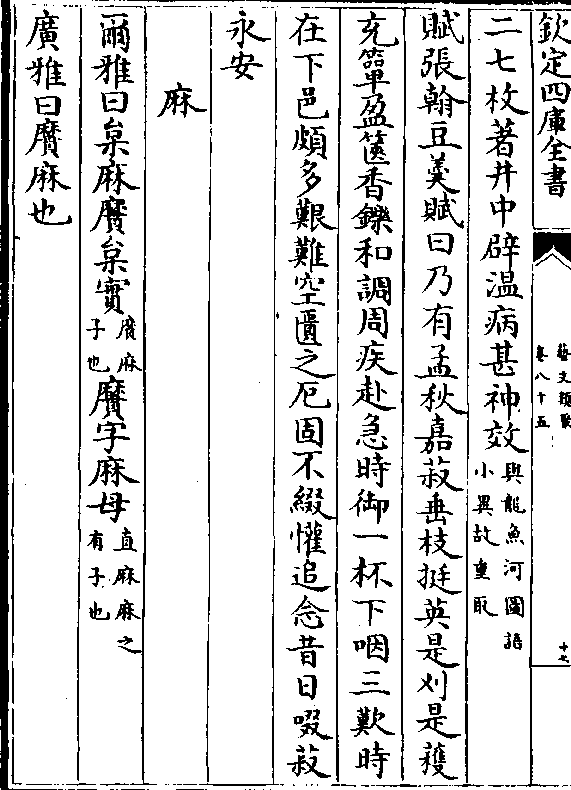 欽定四庫全書
藝文類聚
卷八十五
十七
二七枚著井中辟温病甚神效與龍魚河圖語
小異故重取
賦張翰豆羮賦曰乃有孟秋嘉菽垂枝挺英是刈是穫
充簞盈篋香鑠和調周疾赴急時御一杯下咽三歎時
在下邑頗多艱難空匱之厄固不綴懽追念昔日啜菽
永安
麻
爾雅曰枲麻黂枲實黂麻
子也黂字麻母苴麻麻之
有子也
廣雅曰黂麻也